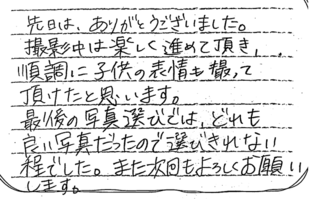 先日は、ありがとうございました。
撮影中は楽しく進めて頂き、
順調に子供の表情も撮って
頂けたと思います。
最後の写真選びでは、どれも
良い写真だったので選びきれない
程でした。また次回もよろしくお願い
します。